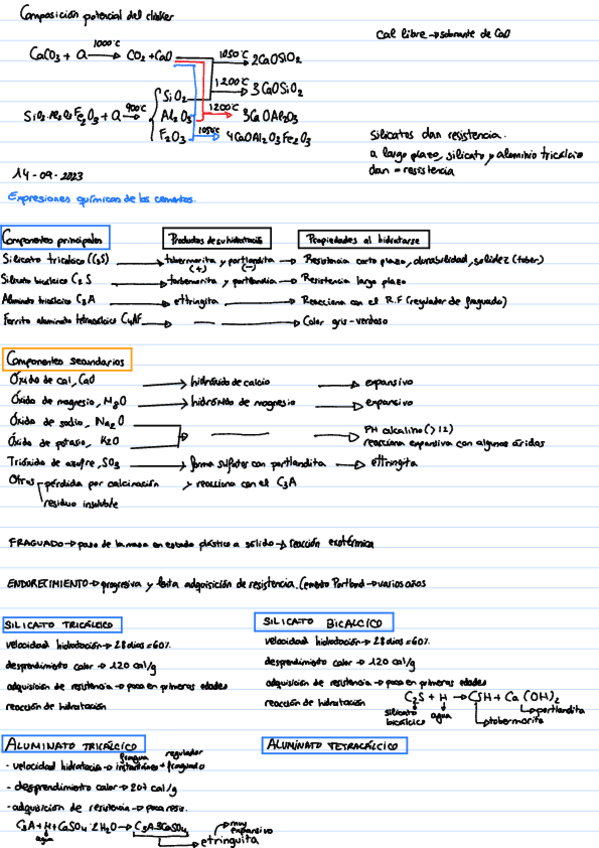 Composición potencial del clinker
Cal libre → sobrante de CaO
CaCO3 + Q 1000°C → CO2 + CaO
1050°C → 2CaOSiO2
1200°C → 3CaOSiO2
SiO2·Al2O3Fe2O3 + Q 900°C →
SiO2
Al2O3 1200°C → 3CaOAl2O3
F2O3 1050°C → 4CaOAl2O3Fe2O3
Silicatos dan resistencia.
a largo plazo, silicato y aluminio tricálcico
dan = resistencia
14-09-2023
Expresiones químicas de los cementos.
Componentes principales
Productos de su hidratación
Propiedades al hidratarse
Silicato tricálcico (C3S) → tobermorita (+) y portlandita (-) → Resistencia corto plazo, durabilidad, solidez (tober)
Silicato bicálcico C2S → tobermorita y portlandita → Resistencia largo plazo
Aluminato tricálcico C3A → ettringita → Reacciona con el R.F (regulador de fraguado)
Ferrito aluminato tetracálcico C4AF → — → Color gris-verdoso
Componentes secundarios
Óxido de cal, CaO → hidróxido de calcio → expansivo
Óxido de magnesio, MgO → hidróxido de magnesio → expansivo
Óxido de sodio, Na2O
Óxido de potasio, K2O → — → PH alcalino (>12)
reacciona expansiva con algunos áridos
Trióxido de azufre, SO3 → forma sulfatos con portlandita → ettringita
Otros pérdida por calcinación → reacciona con el C3A
residuo insoluble
FRAGUADO → paso de la masa en estado plástico a sólido → reacción exotérmica
ENDURECIMIENTO → progresiva y lenta adquisición de resistencia. Cemento Portland → varios años
SILICATO TRICÁLCICO
velocidad hidratación → 28 días = 60%
desprendimiento calor → 120 cal/g
adquisición de resistencia → poca en primeras edades
reacción de hidratación
SILICATO BICALCICO
velocidad hidratación → 28 días = 60%.
desprendimiento calor → 120 cal/g
adquisición de resistencia → poca en primeras edades
reacción de hidratación
C2S + H → CSH + Ca(OH)2
silicato bicálcico
agua
portlandita
tobermorita
ALUMINATO TRICÁLCICO
ALUMINATO TETRACÁLCICO
fragua regulador
- velocidad hidratacio → instantáneo + fraguado
- desprendimiento calor → 207 cal/g
- adquisición de resistencia → poca resis.
C3A + H + CaSO4·2H2O → C3A3CaSO4 → muy expansivo
agua
etringuita